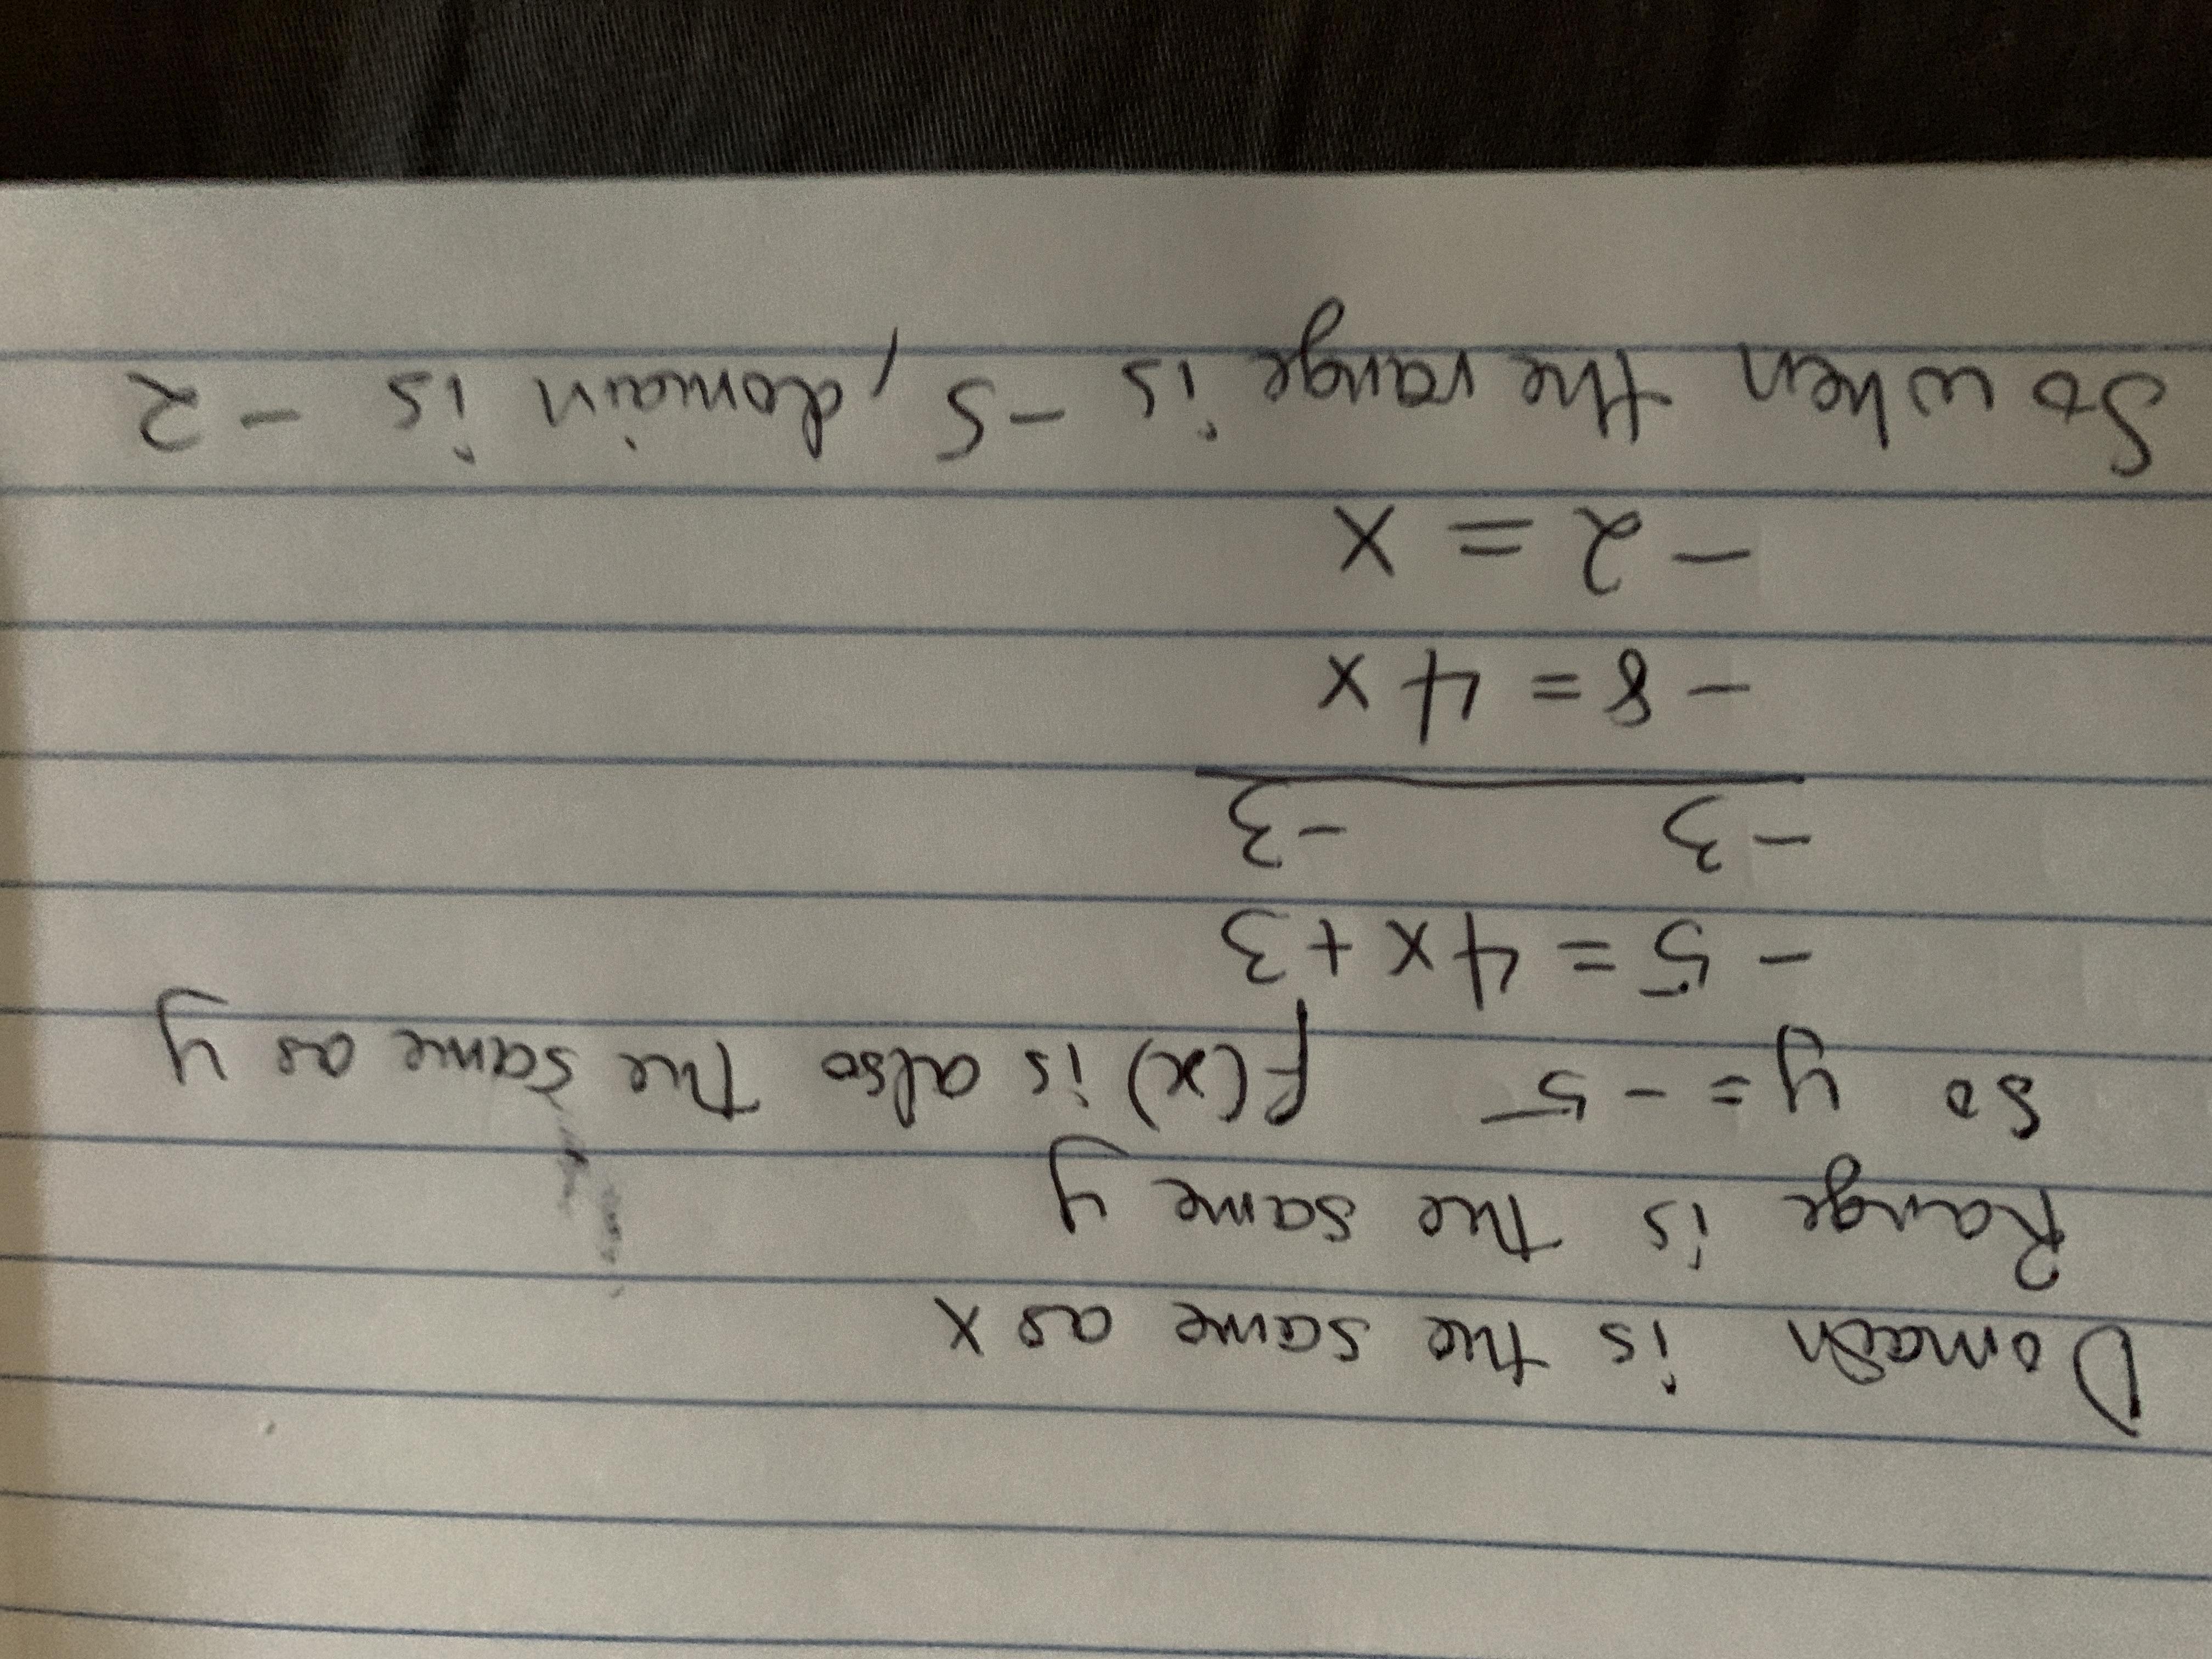 Domain is the same as x
Range is the same y
so y = -5 f(x) is also the same as y
-5 = 4x + 3
-3 -3
-8 = 4x
-2 = x
So when the range is -5, domain is -2